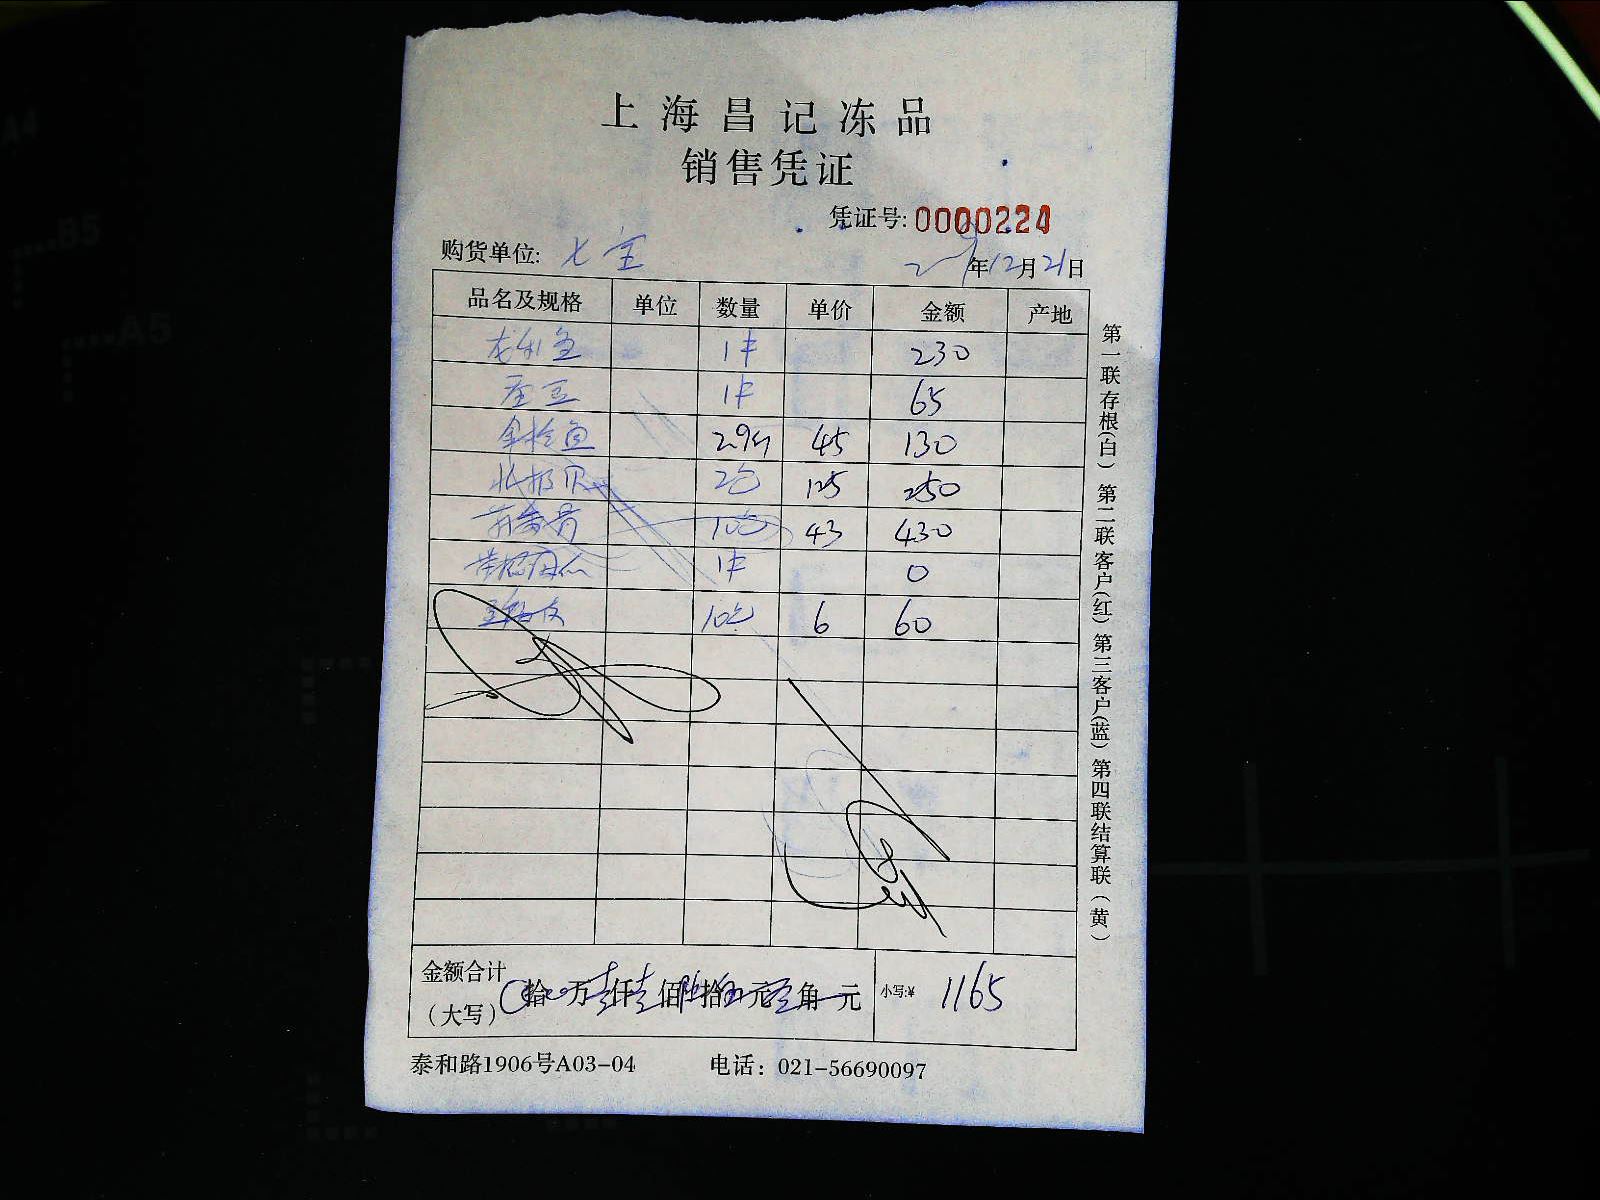 上海昌记冻品
销售凭证
凭证号: 0000224
购货单位: 七宝
年12月21日
品名及规格 单位 数量 单价 金额 产地
龙利鱼 1件 230
1件 65
金枪鱼 2.9斤 45 130
北极贝 2包 125 250
10包 43 430
1件 0
10包 6 60
金额合计(大写) 拾 万壹仟壹佰陆拾伍元零角 元 小写:¥ 1165
泰和路1906号A03-04 电话: 021-56690097
第一联存根(白) 第二联客户(红) 第三客户(蓝) 第四联结算联(黄)